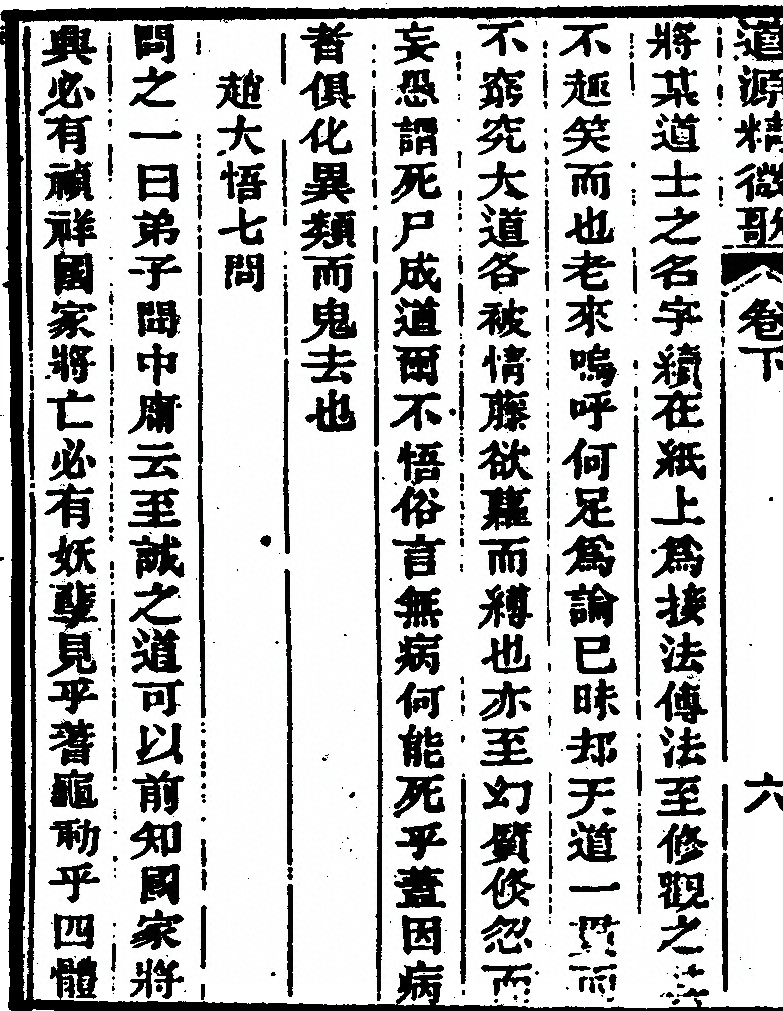 道源精微歌 卷下 六
將某道士之名字續在紙上爲接法傳法至修觀之
不趣笑而也老來嗚呼何足爲論已昧却天道一貫而
不窮究大道各被情藤欲蘿而縛也亦至幻質倐忽而
妄愚謂死尸成道爾不悟俗言無病何能死乎蓋因病
者俱化異類而鬼去也
趙大悟七問
問之一曰弟子問中庸云至誠之道可以前知國家將
興必有禎祥國家將亡必有妖孽見乎蓍龜動乎四體